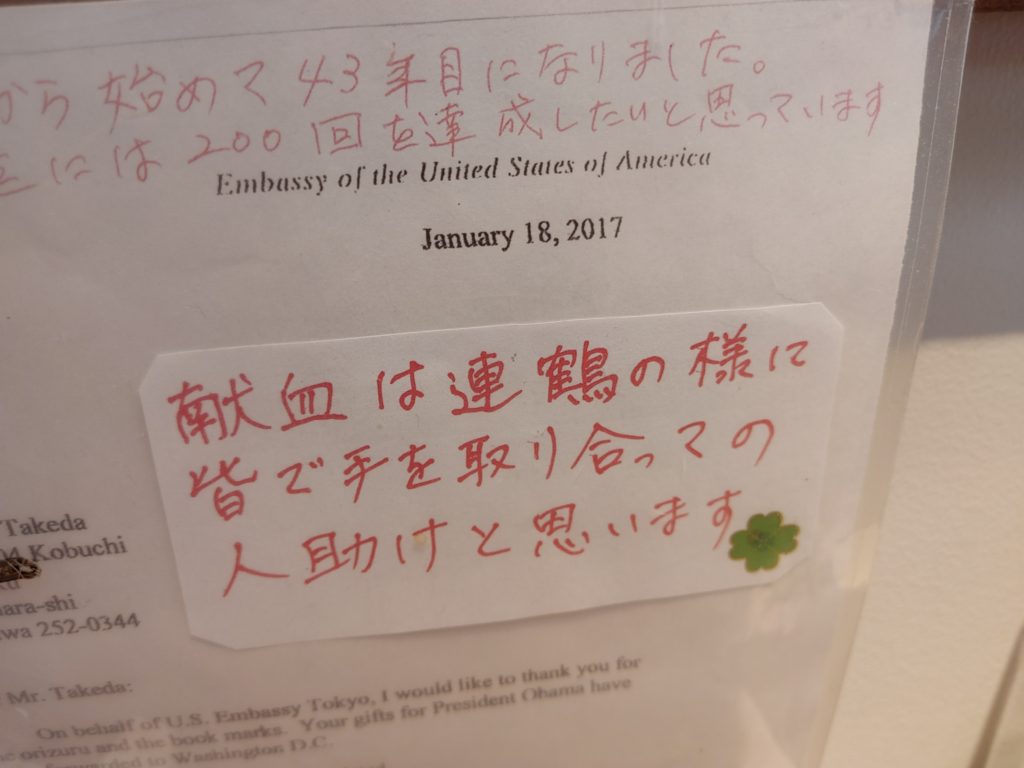 から始めて43年目になりました。
には200回を達成したいと思っています
Embassy of the United States of America
January 18, 2017
献血は連鶴の様に
皆で手を取り合っての
人助けと思います
Takeda
Kobuchi
ara-shi
wa 252-0344
Mr. Takeda:
On behalf of U.S. Embassy Tokyo, I would like to thank you for
orizuru and the book marks. Your gifts for President Obama have
forwarded to Washington D.C.